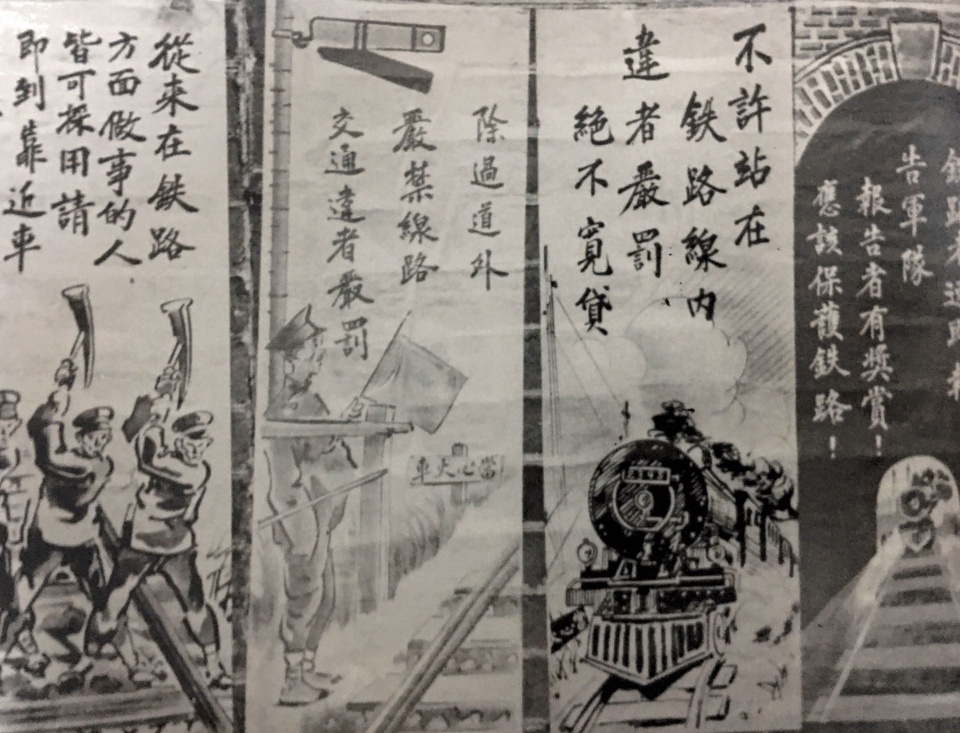 告軍隊
報告者有獎賞！
應該保護鉄路！
不許站在
鉄路線内
違者嚴罰
絕不寬貸
除過道外
嚴禁線路
交通違者嚴罰
當心火車
從來在鉄路
方面做事的人
皆可採用請
即到靠近車